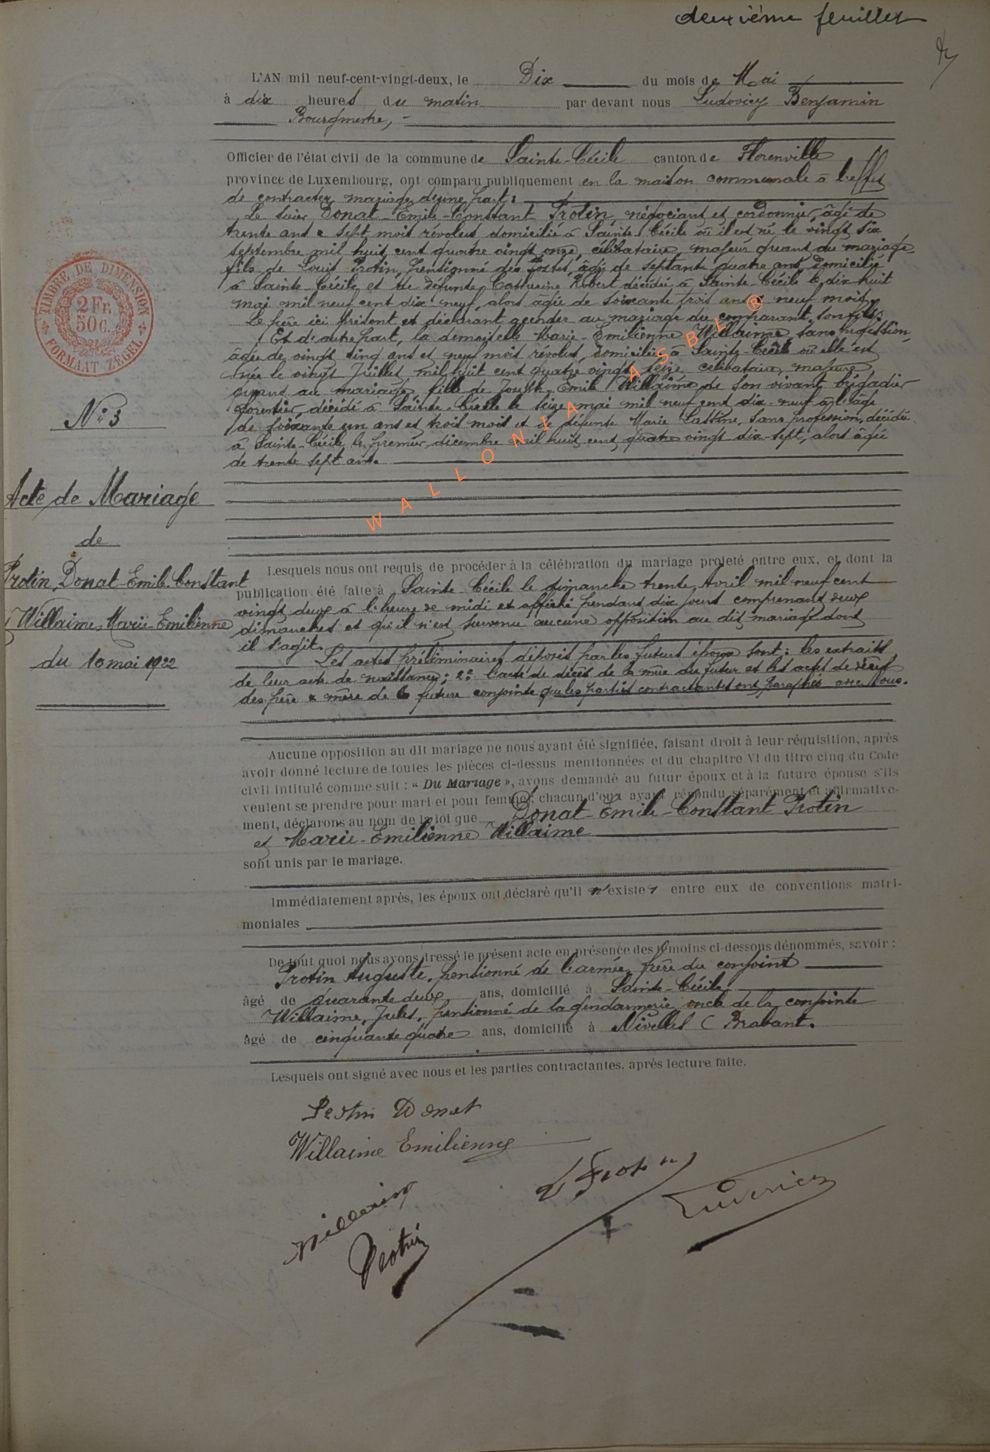 deuxième feuillet
L'AN mil neuf-cent-vingt-deux, le Dix du mois de Mai
à dix heures du matin par devant nous Ludovicy Benjamin
Bourgmestre,
Officier de l'état civil de la commune de Sainte-Cécile canton de Florenville
province de Luxembourg, ont comparu publiquement en la maison communale à l'effet
de contracter mariage, d'une part :
Le sieur Donat-Emile-Constant Protin, négociant et cordonnier, âgé de
trente ans sept mois révolus domicilié à Sainte Cécile où il est né le vingt six
septembre mil huit cent quatre vingt onze, célibataire, majeur quant au mariage
fils de Louis Protin, Pensionné des Postes, âgé de septante quatre ans, domicilié
à Sainte-Cécile, et de défunte Catherine Robert décédée à Sainte-Cécile le dix huit
mai mil neuf cent dix neuf, alors âgée de soixante trois ans neuf mois,
Le père ici présent et déclarant au mariage du comparant, son fils.
Et d'autre part, la demoiselle Marie-Emilienne Willaime, sans profession,
âgée de vingt cinq ans et neuf mois révolus, domiciliée à Sainte-Cécile où elle est
née le vingt Juillet mil huit cent quatre vingt seize, célibataire, majeure
quant au mariage, fille de Joseph-Emile Willaime, de son vivant brigadier
forestier, décédé à Sainte-Cécile le seize mai mil neuf cent dix neuf à l'âge
de soixante un ans et trois mois et de défunte Marie Lassine, sans profession, décédée
à Sainte-Cécile, le premier décembre mil huit cent quatre vingt dix-sept, alors âgée
de trente sept ans.
WALLONIA ASBL ®
TIMBRE DE DIMENSION
2 Fr.
50 C.
FORMAAT ZEGEL
N° 3
Acte de Mariage
de
Protin, Donat-Emile-Constant
Willaime, Marie-Emilienne
du 10 mai 1922
Lesquels nous ont requis de procéder à la célébration du mariage projeté entre eux, et dont la
publication été faite à Sainte-Cécile le dimanche trente Avril mil neuf cent
vingt deux à l'heure de midi et affiché pendant dix jours comprenant deux
dimanches et qu'il n'est survenu aucune opposition au dit mariage dont
il s'agit.
Les actes préliminaires déposés par les futurs époux sont : les extraits
de leur acte de naissance; 2° l'acte de décès de la mère du futur et les actes de décès
des père & mère de la future conjointe que les parties contractantes ont paraphés avec Nous.
Aucune opposition au dit mariage ne nous ayant été signifiée, faisant droit à leur réquisition, après
avoir donné lecture de toutes les pièces ci-dessus mentionnées et du chapitre VI du titre cinq du Code
civil intitulé comme suit : « Du Mariage », avons demandé au futur époux et à la future épouse s'ils
veulent se prendre pour mari et pour femme; chacun d'eux ayant répondu séparément et affirmative-
ment, déclarons au nom de la loi que Donat-Emile-Constant Protin
et Marie-Emilienne Willaime
sont unis par le mariage.
Immédiatement après, les époux ont déclaré qu'il n'existe entre eux de conventions matri-
moniales
De tout quoi nous avons dressé le présent acte en présence des témoins ci-dessous dénommés, savoir :
Protin Auguste, pensionné de l'armée, frère du conjoint
âgé de quarante deux ans, domicilié à Sainte-Cécile
Willaime, Jules, pensionné de la gendarmerie, oncle de la conjointe
âgé de cinquante quatre ans, domicilié à Nivelles (Brabant.
Lesquels ont signé avec nous et les parties contractantes, après lecture faite.
Protin Donat
Willaime Emilienne
Willaime
L Protin
Ludovicy
Protin